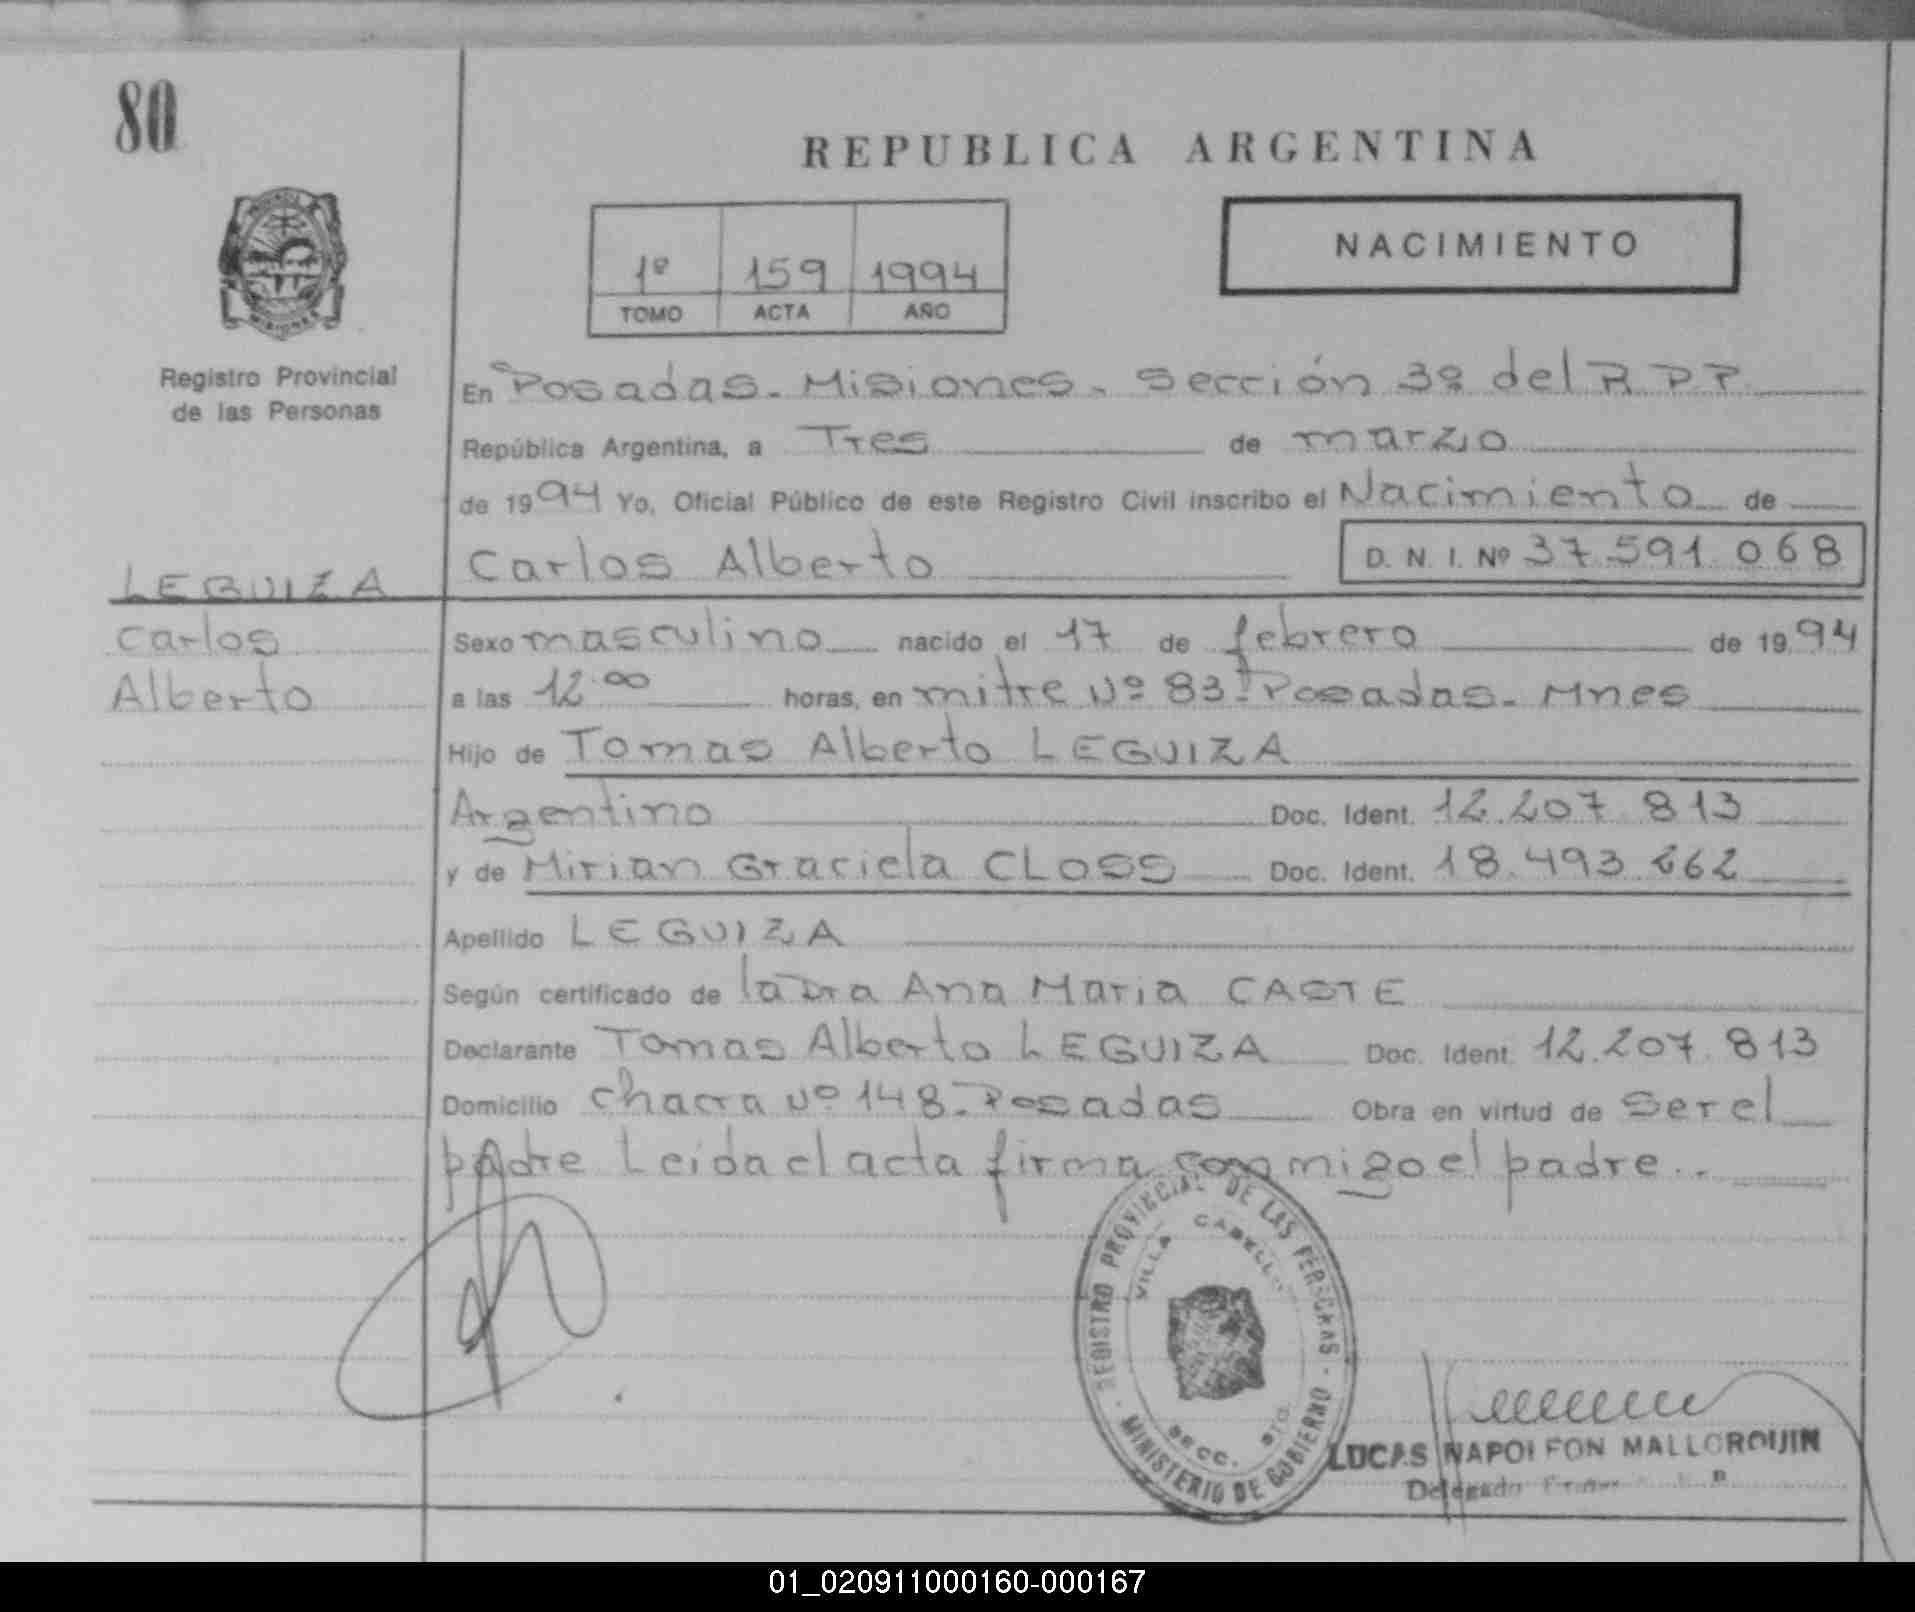 80
REPUBLICA ARGENTINA
NACIMIENTO
1º 159 1994
TOMO ACTA AÑO
MISIONES
Registro Provincial
de las Personas
En Posadas - Misiones - Sección 3º del R P P
República Argentina, a Tres de marzo
de 1994 Yo, Oficial Público de este Registro Civil inscribo el Nacimiento de
Carlos Alberto D. N. I. Nº 37.591.068
LEGUIZA
Carlos
Alberto
Sexo masculino nacido el 17 de febrero de 1994
a las 12.00 horas, en mitre Nº 83 - Posadas - Mnes
Hijo de Tomas Alberto LEGUIZA
Argentino Doc. Ident. 12.207.813
y de Mirian Graciela CLOSS Doc. Ident. 18.493.262
Apellido LEGUIZA
Según certificado de la Dra Ana Maria CASTE
Declarante Tomas Alberto LEGUIZA Doc. Ident. 12.207.813
Domicilio chacra Nº 148 - Posadas Obra en virtud de ser el
padre Leida el acta firma conmigo el padre..
REGISTRO PROVINCIAL DE LAS PERSONAS
VILLA CABELLO
SECC.
MINISTERIO DE GOBIERNO
LUCAS NAPOLEON MALLORQUIN
Delegado
01_020911000160-000167